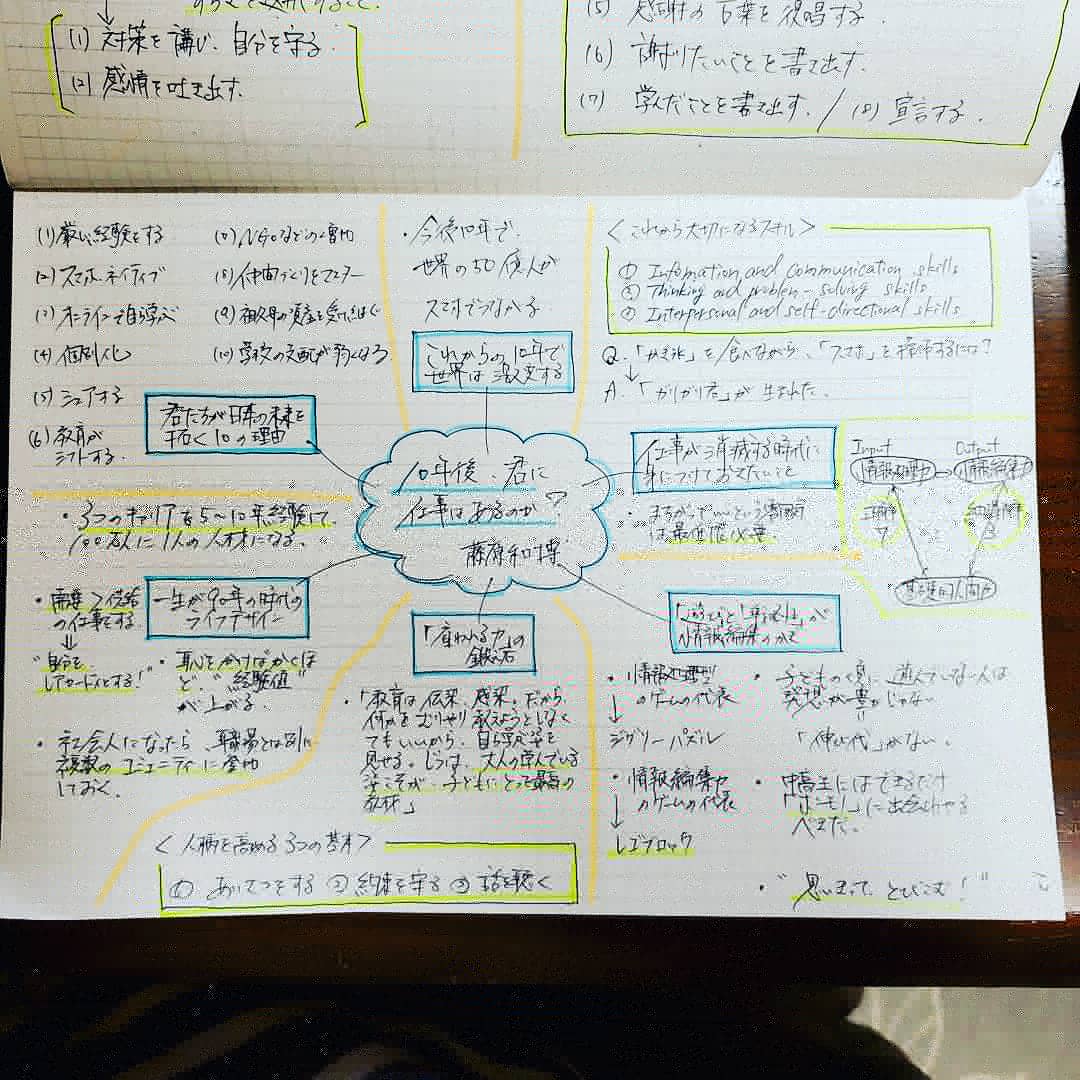 (1) 対策を講じ、自分を守る
(2) 感情を吐き出す.
(5) 感謝の言葉を復唱する.
(6) 謝りたいことを書き出す.
(7) 学んだことを書き出す. / (8) 宣言する.
(1) 厳しい経験をする
(2) スマホネイティブ
(3) オンラインで自学ぶ
(4) 個別化
(5) シェアする
(6) 教育が
シフトする.
(7) NGOなどの増加
(8) 仲間づくりをマスター
(9) 祖父母の資産を受けつぐ
(10) 学校の支配が弱くなる
君たちが日本の未来を
拓く10の理由
・今後10年で、
世界の50億人が
スマホでつながる
これからの10年で
世界は激変する
<これから大切になるスキル>
① Infomation and communication skills
② Thinking and problem-solving skills
③ Interpersonal and self-directional skills
Q.「かき氷」を食べながら、「スマホ」を操作するには?
↓
A.「ガリガリ君」が生まれた.
10年後、君に
仕事はあるのか?
藤原和博
仕事が消滅する時代に
身につけておきたいこと
Input
Output
情報処理力
情報編集力
正解率
7
3
基礎的人間力
・3つのキャリアを5〜10年経験して、
100万人に1人の人材になる.
一生が90年の時代の
ライフデザイン
・需要>供給
の仕事をする
↓
"自分を
レアカード化する!"
・恥をかけばかくほ
ど、"経験値"
が上がる.
・社会人になったら、職場とは別に
複数のコミュニティに参加
しておく.
「雇われる力」の
鍛え方
「教育は伝染、感染。だから、
何かをむりやり教えようとしなく
てもいいから、自ら学ぶ姿を
見せる。じつは、大人の学んでいる
姿こそが、子どもにとって最高の
教材」
<人柄を高める3つの基本>
① あいさつをする ② 約束を守る ③ 話を聴く
「遊び」と「戦略性」が
情報編集のカギ
・情報処理型
のゲームの代表
↓
ジグソーパズル
・情報編集力
のゲームの代表
↓
レゴブロック
・子どもの頃に遊んでいない人は
発想が豊かじゃない
「伸び代」がない.
・中高生にはできるだけ
「ナナメ」に出会わせる
べきだ.
・"思いきって、とびこむ!"